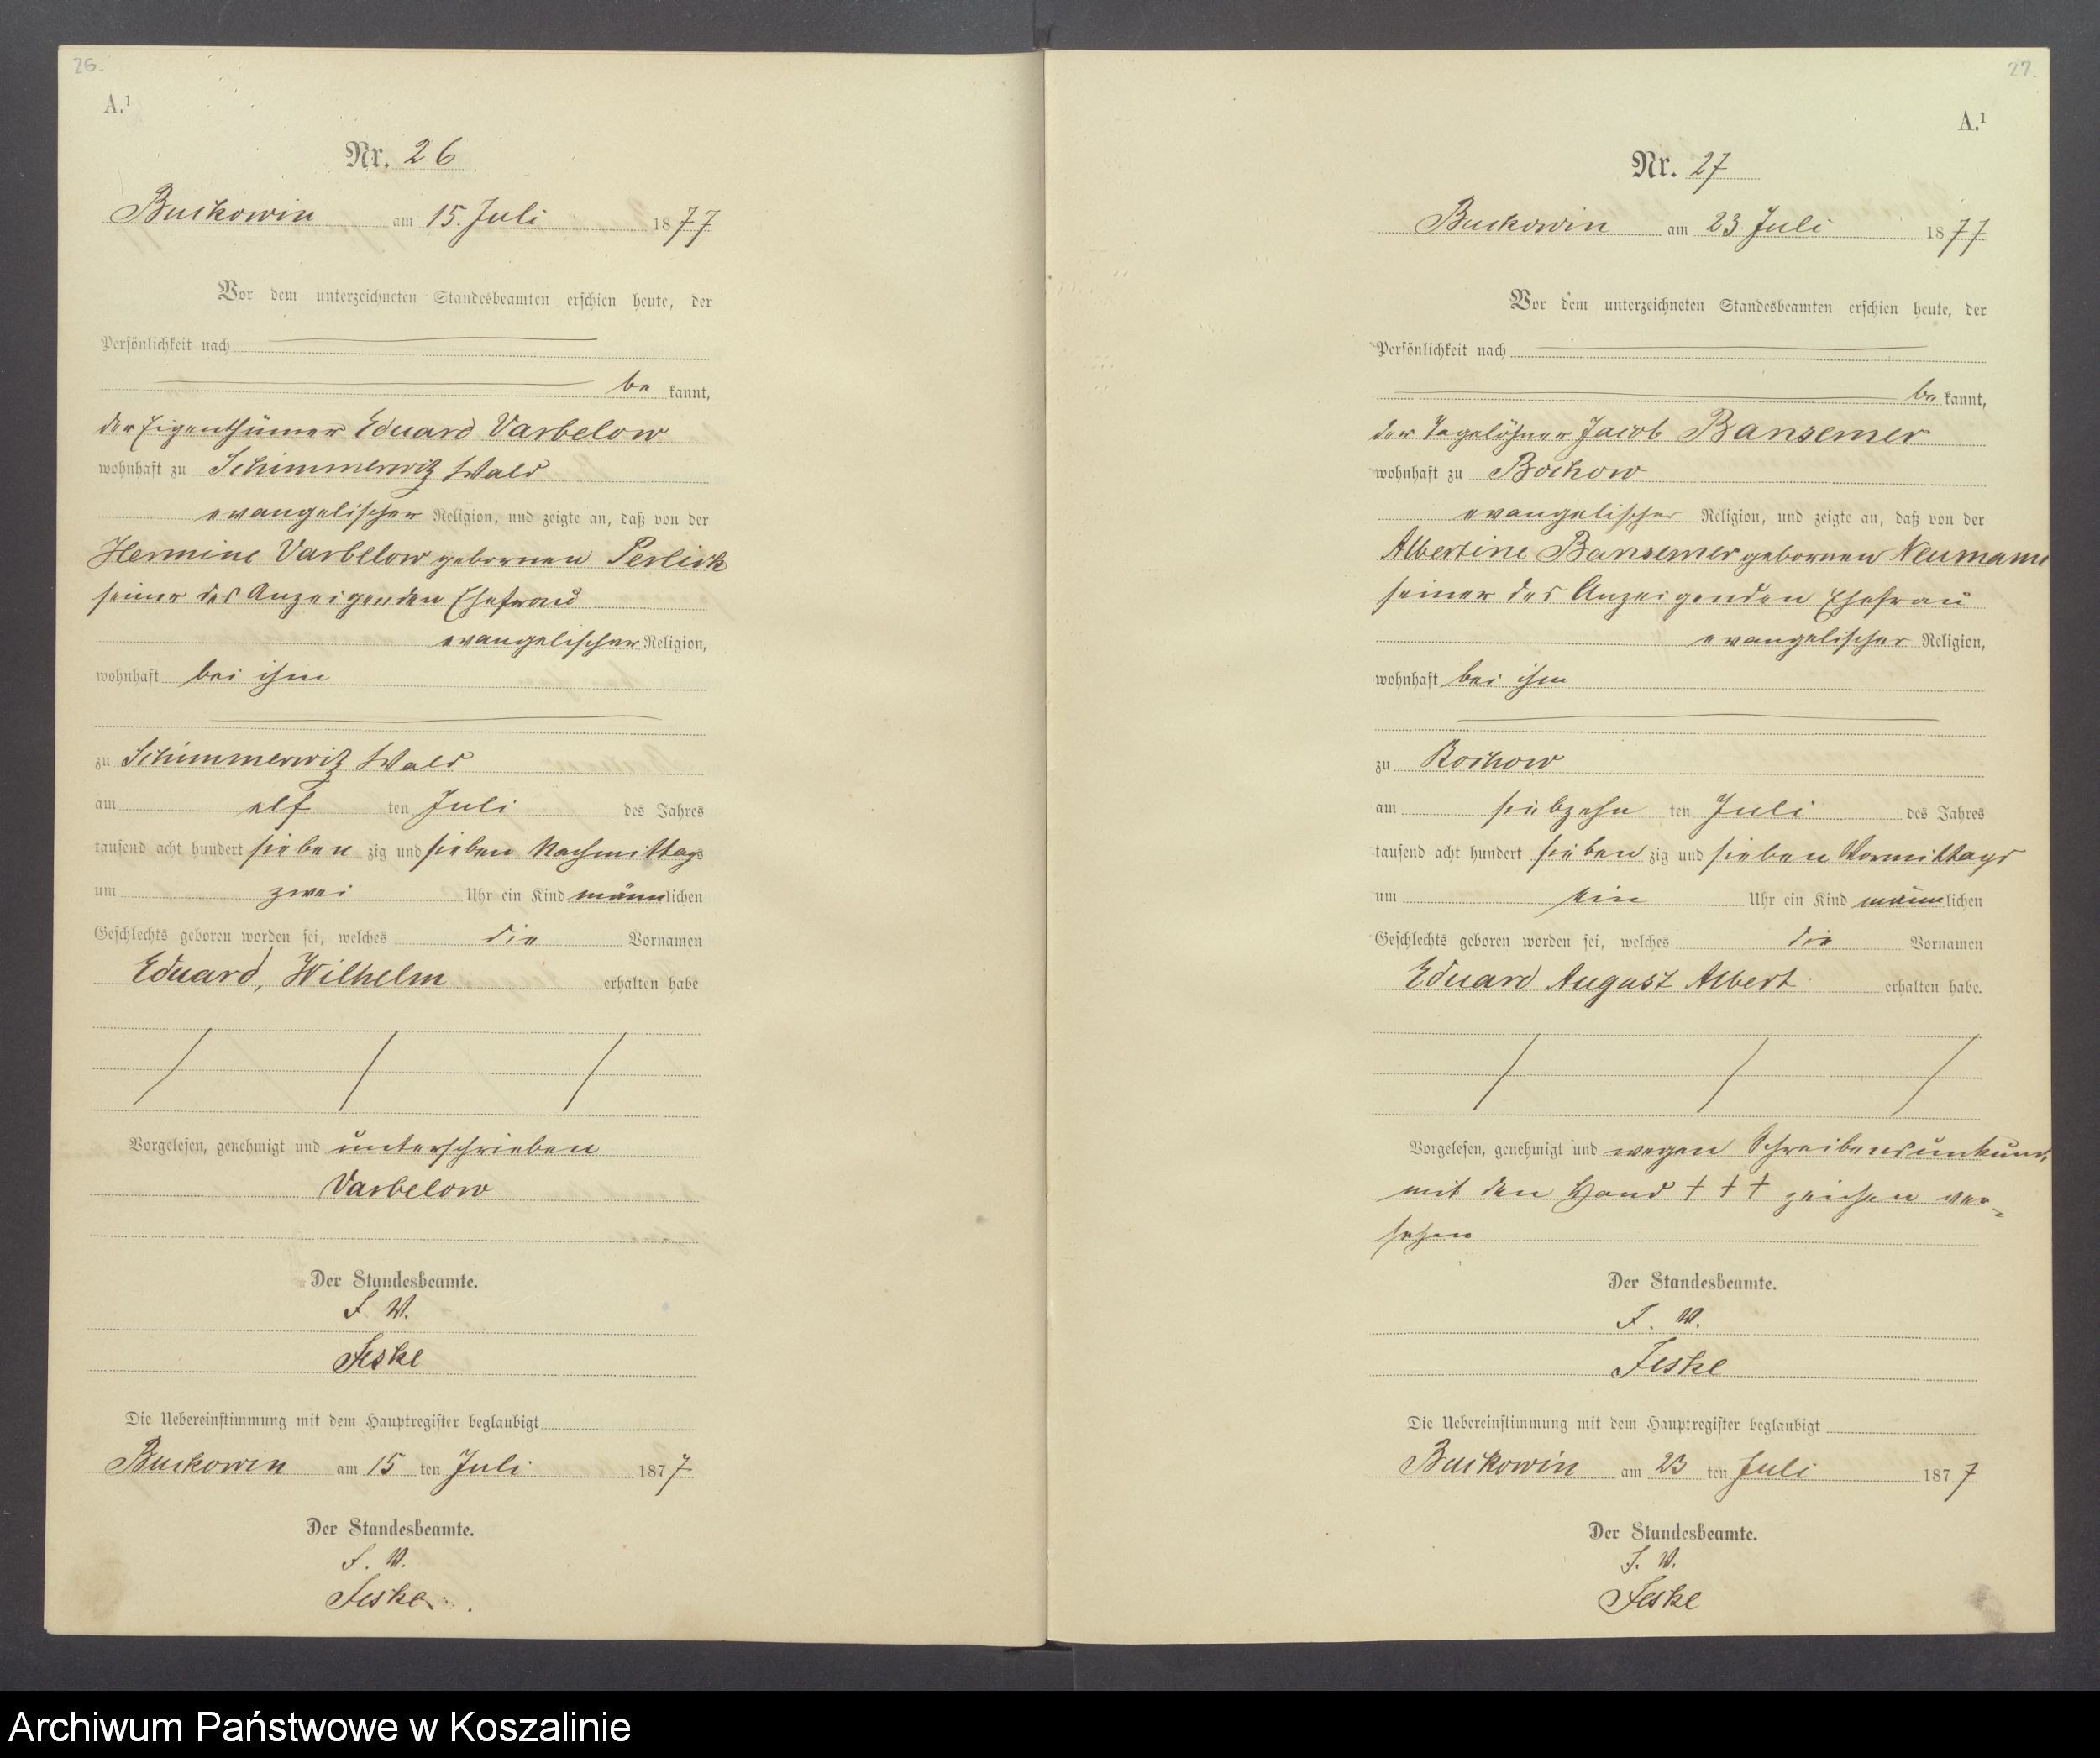 26.
A.¹
Nr. 26
Buckowin am 15. Juli 1877
Vor dem unterzeichneten Standesbeamten erschien heute, der
Persönlichkeit nach
be kannt,
der Eigenthümer Eduard Varbelow
wohnhaft zu Schimmerwitz Wald
evangelischer Religion, und zeigte an, daß von der
Hermine Varbelow gebornen Perlick
seiner des Anzeigenden Ehefrau
evangelischer Religion,
wohnhaft bei ihm
zu Schimmerwitz Wald
am elf ten Juli des Jahres
tausend acht hundert sieben zig und sieben Nachmittags
um zwei Uhr ein Kind männlichen
Geschlechts geboren worden sei, welches die Vornamen
Eduard, Wilhelm erhalten habe
Vorgelesen, genehmigt und unterschrieben
Varbelow
Der Standesbeamte.
J. W.
Jeske
Die Uebereinstimmung mit dem Hauptregister beglaubigt
Buckowin am 15 ten Juli 1877
Der Standesbeamte.
J. W.
Jeske
27.
A.¹
Nr. 27
Buckowin am 23 Juli 1877
Vor dem unterzeichneten Standesbeamten erschien heute, der
Persönlichkeit nach
be kannt,
der Tagelöhner Jacob Bansemer
wohnhaft zu Bochow
evangelischer Religion, und zeigte an, daß von der
Albertine Bansemer gebornen Neumann
seiner des Anzeigenden Ehefrau
evangelischer Religion,
wohnhaft bei ihm
zu Bochow
am siebzehn ten Juli des Jahres
tausend acht hundert sieben zig und sieben Vormittags
um ein Uhr ein Kind männlichen
Geschlechts geboren worden sei, welches die Vornamen
Eduard August Albert erhalten habe.
Vorgelesen, genehmigt und wegen Schreibensunkund
mit den Hand † † † zeichen ver-
sehen
Der Standesbeamte.
J. W.
Jeske
Die Uebereinstimmung mit dem Hauptregister beglaubigt
Buckowin am 23 ten Juli 1877
Der Standesbeamte.
J. W.
Jeske
Archiwum Państwowe w Koszalinie